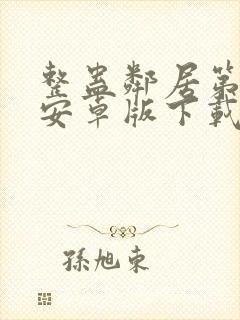 整蛊鄰居第
安卓版下載
孫旭東